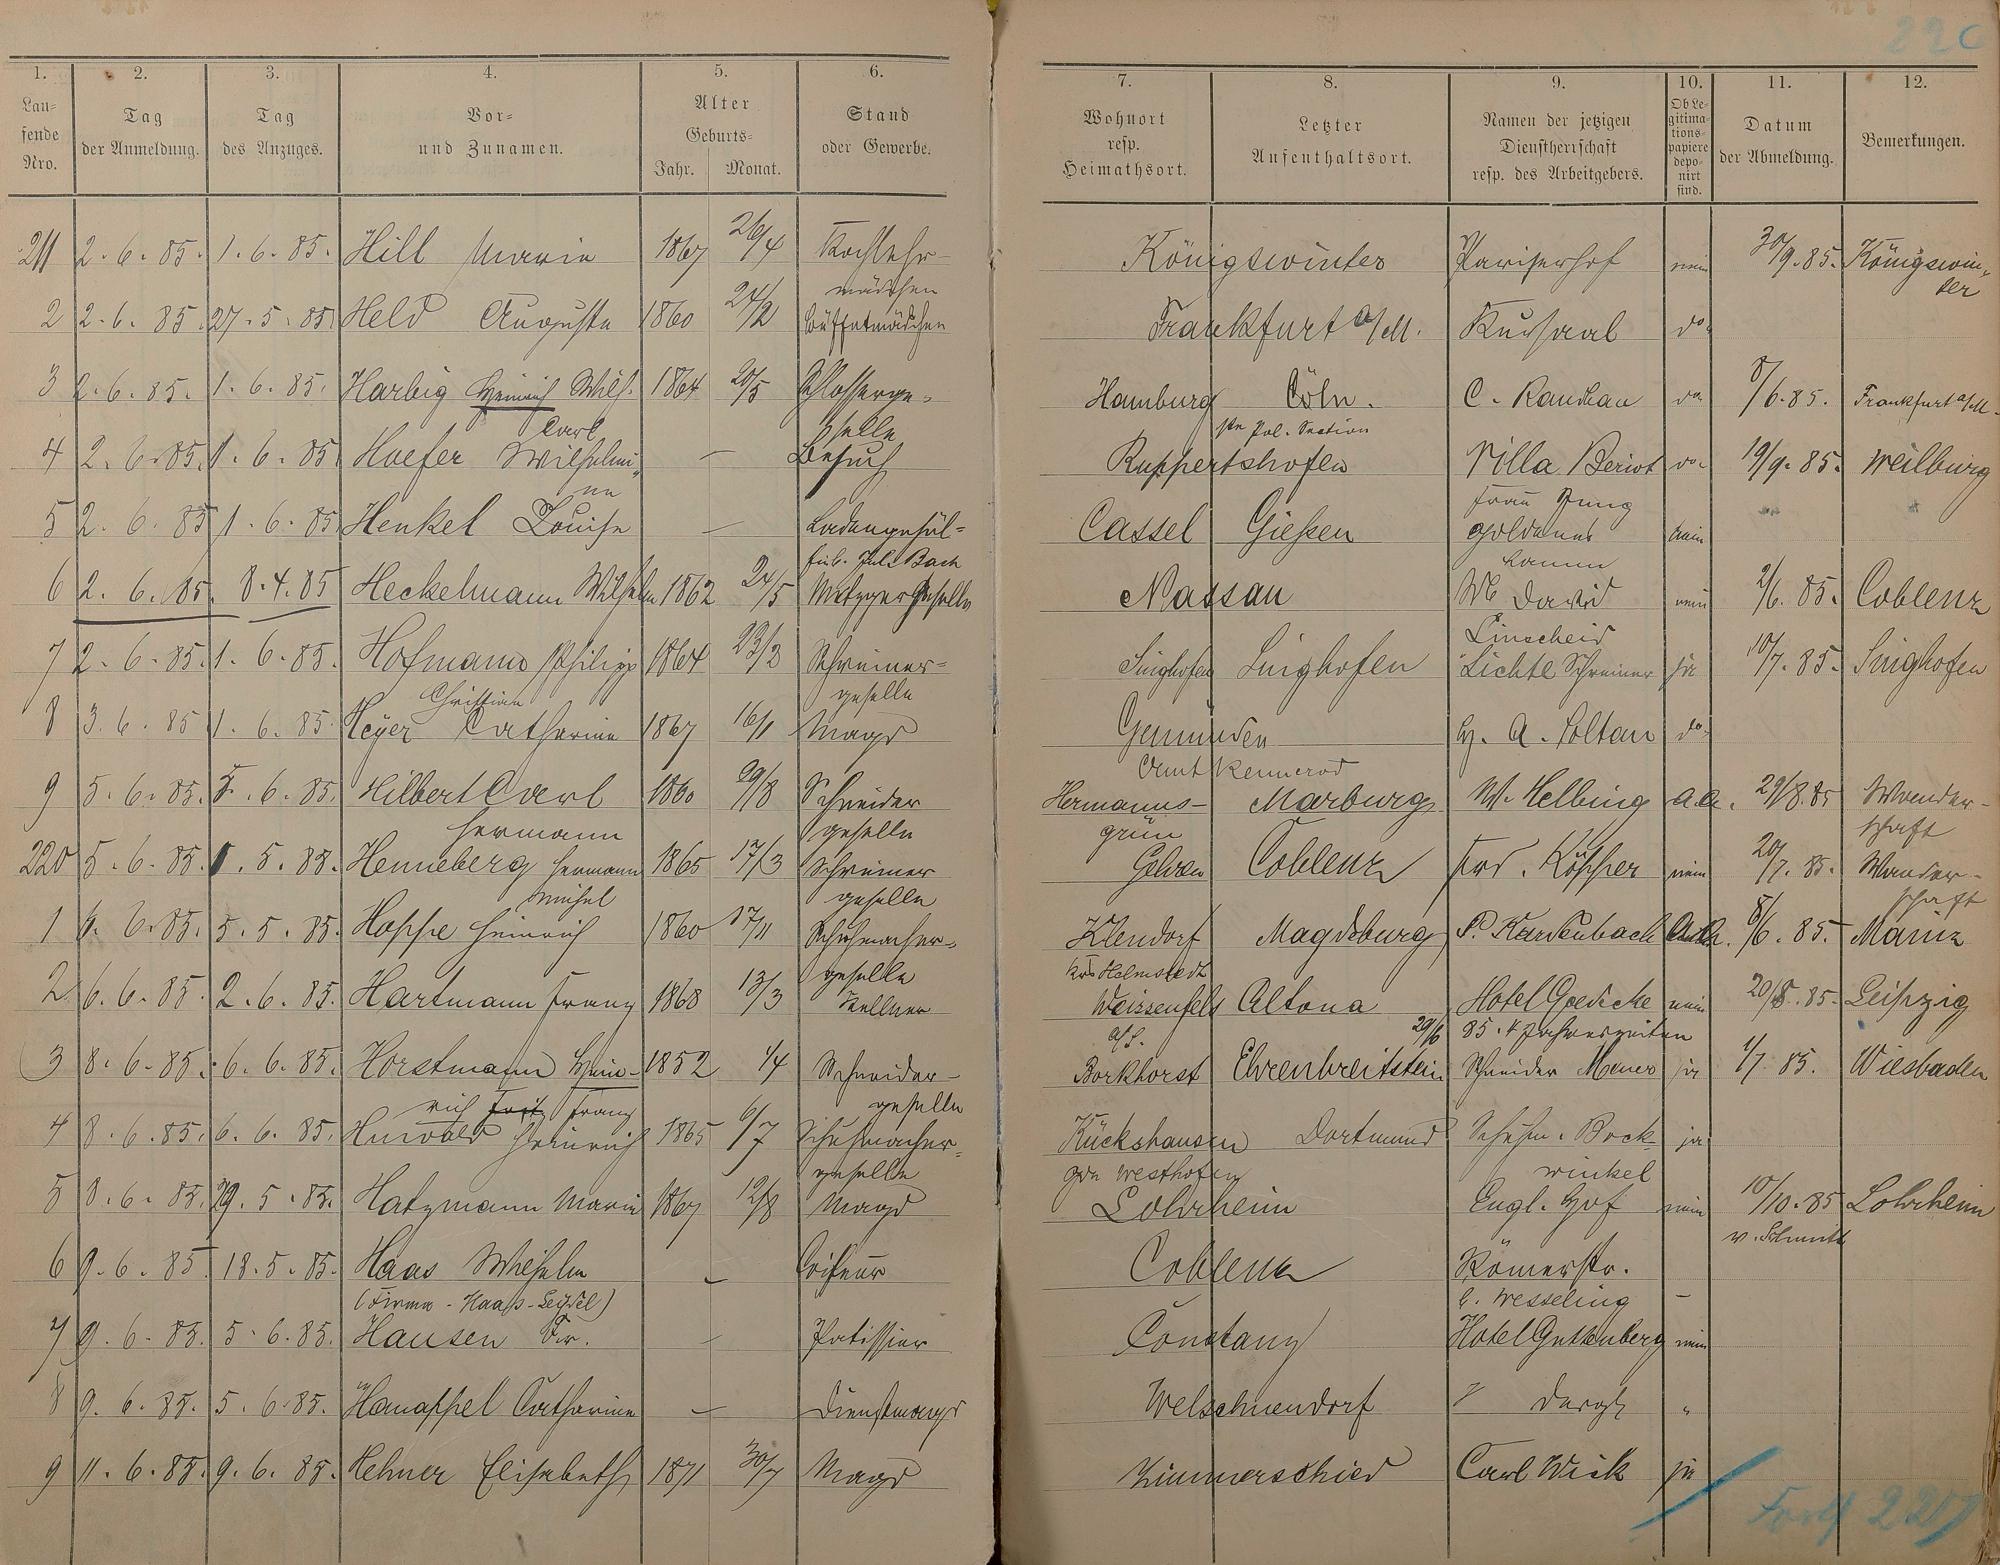 220
1. 2. 3. 4. 5. 6. 7. 8. 9. 10. 11. 12.
Lau-
fende
Nro.
Tag
der Anmeldung.
Tag
des Anzuges.
Vor-
und Zunamen.
Alter
Geburts-
Jahr. Monat.
Stand
oder Gewerbe.
Wohnort
resp.
Heimathsort.
Letzter
Aufenthaltsort.
Namen der jetzigen
Dienstherrschaft
resp. des Arbeitgebers.
Ob Le-
gitima-
tions-
papiere
depo-
nirt
sind.
Datum
der Abmeldung.
Bemerkungen.
211 2. 6. 85. 1. 6. 85. Hill Marie 1867 26/4 Kochlehr- Königswinter Pariserhof nein 30/9. 85. Königswin-
mädchen ter
2 2. 6. 85. 27. 5. 85. Held Auguste 1860 24/2 Büffetmädchen Frankfurt a/M. Kursaal do
3 2. 6. 85. 1. 6. 85. Harbig Heinrich Wilh. 1864 20/5 Schlosserge- Hamburg Cöln. C. Randhau do 8/6. 85. Frankfurt a/M.
Carl selle Pol. Section
4 2. 6. 85. 1. 6. 85. Hoefer Wilhelmi- — Besuch Ruppertshofen Villa Beriot do 19/9. 85. Weilburg
ne Frau Jung
5 2. 6. 85 1. 6. 85 Henkel Louise — Ladengehül- Cassel Gießen goldenes nein
Jul. Bach Lamm
6 2. 6. 85. 8. 4. 85 Heckelmann Wilhelm 1862 24/5 Metzgergeselle Nassau W David nein 2/6. 85. Coblenz
Linscheid
7 2. 6. 85. 1. 6. 85. Hofmann Philipp 1864 23/2 Schreiner- Singhofen Singhofen Lichte Schreiner ja 10/7. 85. Singhofen
Christian geselle
8 3. 6. 85 1. 6. 85. Heyer Catharine 1867 16/1 Magd Gemünden H. A. Soltau do
Amt Rennerod
9 5. 6. 85. 5. 6. 85. Hilbert Carl 1860 29/8 Schneider Hermanns- Marburg W. Helbing 29/8. 85 Wander-
Hermann geselle grün schaft
220 5. 6. 85. 1. 5. 85. Henneberg Hermann 1865 17/3 Schreiner Gehren Coblenz Frd. Köpper nein 20/7. 85. Wander-
Michel geselle schaft
1 6. 6. 85. 5. 5. 85. Hoppe Heinrich 1860 17/11 Schuhmacher- Magdeburg P. Kurdenbach 8/6. 85. Mainz
geselle Helmstedt
2 6. 6. 85. 2. 6. 85. Hartmann Franz 1868 13/3 Kellner Weissenfels Altona Hotel Goedicke nein 20/8. 85. Leipzig
a/S. 29/6 85
3 8. 6. 85. 6. 6. 85. Horstmann Hein- 1852 1/4 Schneider- Borkhorst Ehrenbreitstein Schneider ja 1/7. 85. Wiesbaden
rich Fritz Franz geselle
4 8. 6. 85. 6. 6. 85. Heinrich 1865 6/7 Schuhmacher- Rückshausen Dortmund Schuhm. Bock- ja
geselle Westhofen winkel
5 8. 6. 85. 29. 5. 85. Hatzmann Marie 1867 12/8 Magd Lohrheim Engl. Hof nein 10/10. 85 Lohrheim
6 9. 6. 85. 18. 5. 85. Haas Wilhelm — Coifeur Coblenz Römerstr. –
(Firma - Haas-Seydel) b. Wesseling
7 9. 6. 85. 5. 6. 85. Hansen Fr. — Patissier Constanz Hotel Guttenberg nein
8 9. 6. 85. 5. 6. 85. Hanappel Catharine — Dienstmagd Welschneudorf "
9 11. 6. 85. 9. 6. 85. Hehner Elisabeth 1871 30/7 Magd Kimmerschied Carl Wick ja